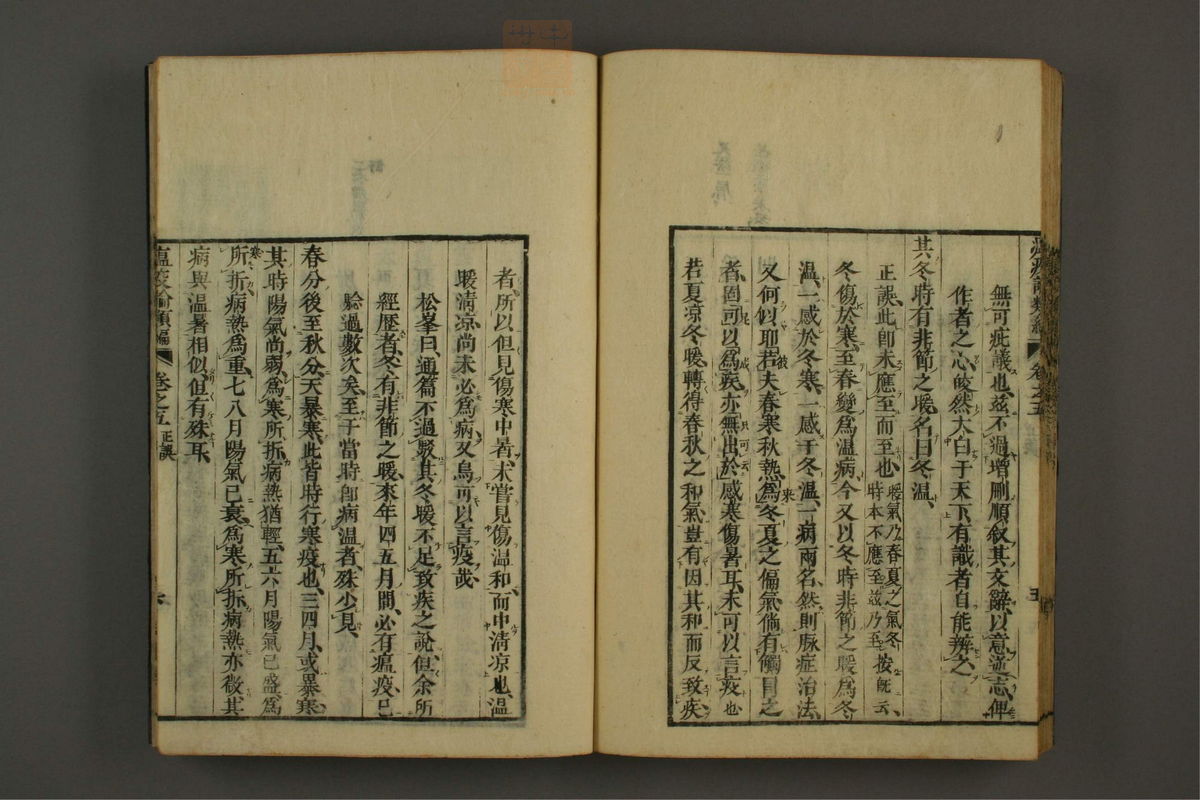 無可疵議也、茲不過增刪順敘其文辭、以意逆志、俾
作者之心、皎然大白于天下、有識者自能辨之、
其冬時有非節之暖、名曰冬溫、
正誤、此卽未應至而至也、暖氣乃春夏之氣冬時本不應至茲乃至按旣云、
冬傷於寒、至春變爲溫病、今又以冬時非節之暖爲冬
溫、一感於冬寒、一感于冬溫、一病兩名、然則脉症治法、
又何似耶、若夫春寒秋熱、爲冬夏之偏氣、倘有觸冒之
者、固可以爲疾、亦無出於感寒傷暑耳、未可以言疫也
若夏凉冬暖、轉得春秋之和氣、豈有因其和而反致疾
者、所以但見傷寒中暑、未嘗見傷溫和而中淸凉也、溫
暖淸凉、尚未必爲病、又烏可以言疫哉、
松峯曰、通篇不過駁其冬暖不足致疾之說、但余所
經歷者、冬有非節之暖、來年四五月間、必有瘟疫、已
驗過數次矣、至于當時卽病溫者、殊少見、
春分後至秋分、天暴寒、此皆時行寒疫也、三四月、或暴寒、
其時陽氣尚弱、爲寒所折、病熱猶輕、五六月陽氣已盛、爲
寒所折、病熱爲重、七八月陽氣已衰、爲寒所折、病熱亦微、其
病與溫暑相似、但有殊耳、
瘟疫論類編 卷之五 正誤